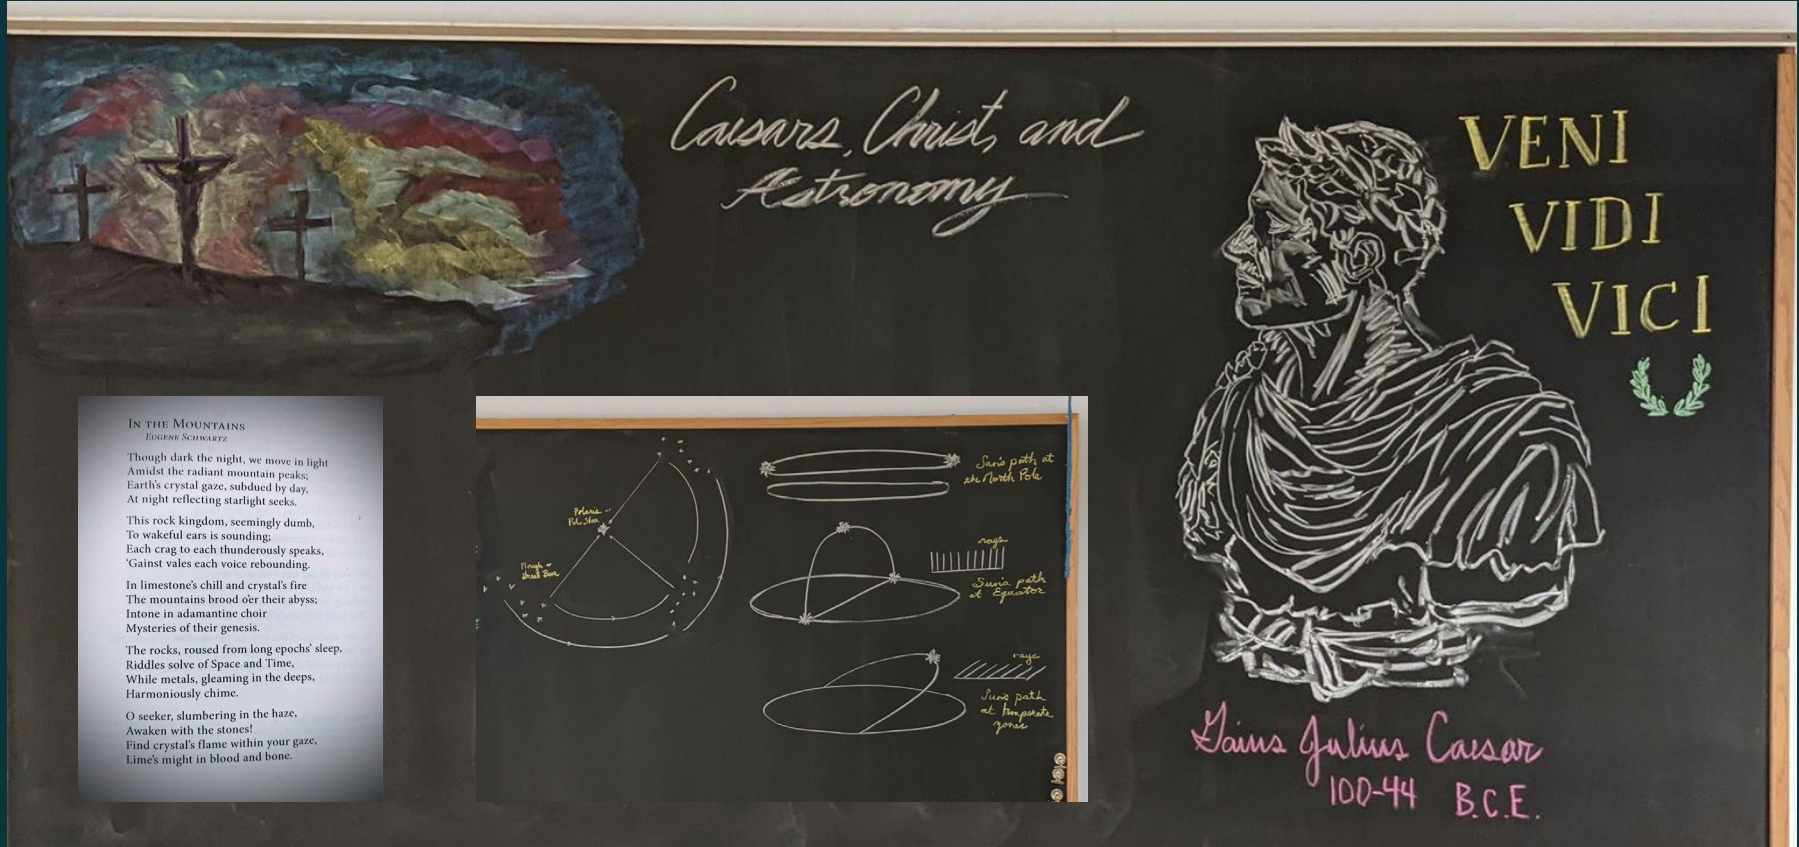 Caesars, Christ, and
Astronomy
VENI
VIDI
VICI
IN THE MOUNTAINS
EUGENE SCHWARTZ
Though dark the night, we move in light
Amidst the radiant mountain peaks;
Earth's crystal gaze, subdued by day,
At night reflecting starlight seeks.
This rock kingdom, seemingly dumb,
To wakeful ears is sounding;
Each crag to each thunderously speaks,
'Gainst vales each voice rebounding.
In limestone's chill and crystal's fire
The mountains brood o'er their abyss;
Intone in adamantine choir
Mysteries of their genesis.
The rocks, roused from long epochs' sleep,
Riddles solve of Space and Time,
While metals, gleaming in the deeps,
Harmoniously chime.
O seeker, slumbering in the haze,
Awaken with the stones!
Find crystal's flame within your gaze,
Lime's might in blood and bone.
Polaris -
Pole Star
Plough -
Great Bear
Sun's path at
the North Pole
rays
Sun's path
at Equator
rays
Sun's path
at temperate
zones
Gaius Julius Caesar
100-44 B.C.E.